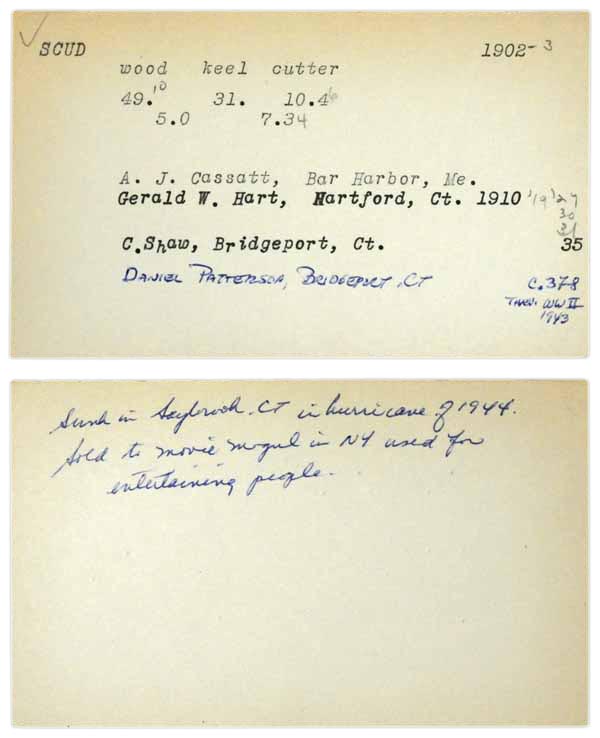 SCUD 1902-3
wood keel cutter
49.10 31. 10.46
5.0 7.34
A. J. Cassatt, Bar Harbor, Me.
Gerald W. Hart, Hartford, Ct. 1910 '19 '27
30
31
C.Shaw, Bridgeport, Ct. 35
DANIEL PATTERSON, BRIDGEPORT, CT C.37-8
THRU. WW II
1943
Sunk in Saybrook, CT in hurricane of 1944.
Sold to movie mogul in NY used for
entertaining people.